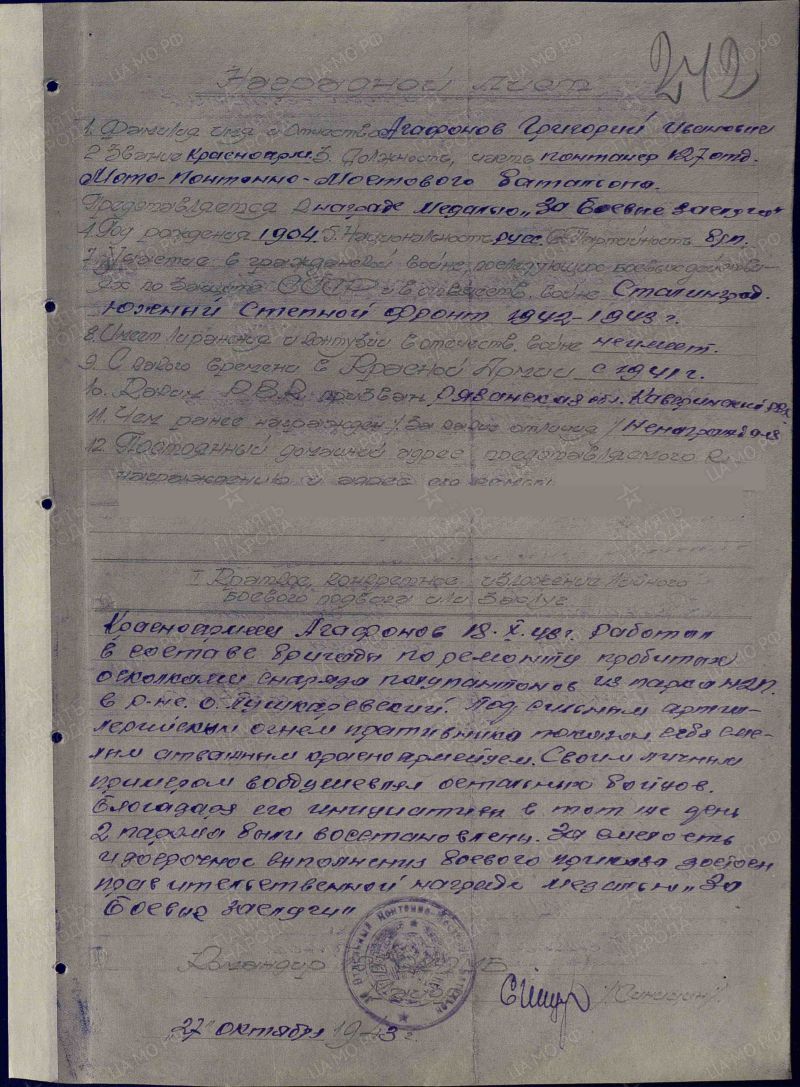 242
Наградной лист
1. Фамилия имя и Отчество Агафонов Григорий Иванович
2 Звание Красноарм. 3. Должность, часть понтонер 127 отд.
Мото-Понтонно-Мостового батальона.
Представляется к награде медалью „За Боевые заслуги"
4. Год рождения 1904. 5. Национальность русс. 6. Партийность б/п.
7. Участие в гражданской войне, последующих боевых действи-
ях по защите СССР и в отечеств. войне Сталинград.
Южный Степной Фронт 1942-1943 г.
8. Имеет ли ранения и контузии в отечеств. войне не имеет.
9. С какого времени в Красной Армии с 1941 г.
10. Каким Р.В.К. призван Рязанская обл. Каверинский РВК
11. Чем ранее награжден /за какие отличия/
12. Постоянный домашний адрес представляемого к
награждению и адрес его семьи
I Краткое, конкретное изложение личного
боевого подвига или заслуг
Красноармеец Агафонов 18.X.43г. работал
в составе бригады по ремонту пробитых
осколками снаряда полупантонов из парка Н2П.
в р-не. о. Пушкаревский. Под сильным артил-
лерийским огнем противника показал себя сме-
лым отважным красноармейцем. Своим личным
примером воодушевлял остальных бойцов.
Благодаря его инициативы в тот же день
2 парома были восстановлены. За смелость
и досрочное выполнения боевого приказа достоен
правительственной награде медалью „За
Боевые заслуги"
Командир
27 октября 1943 г.